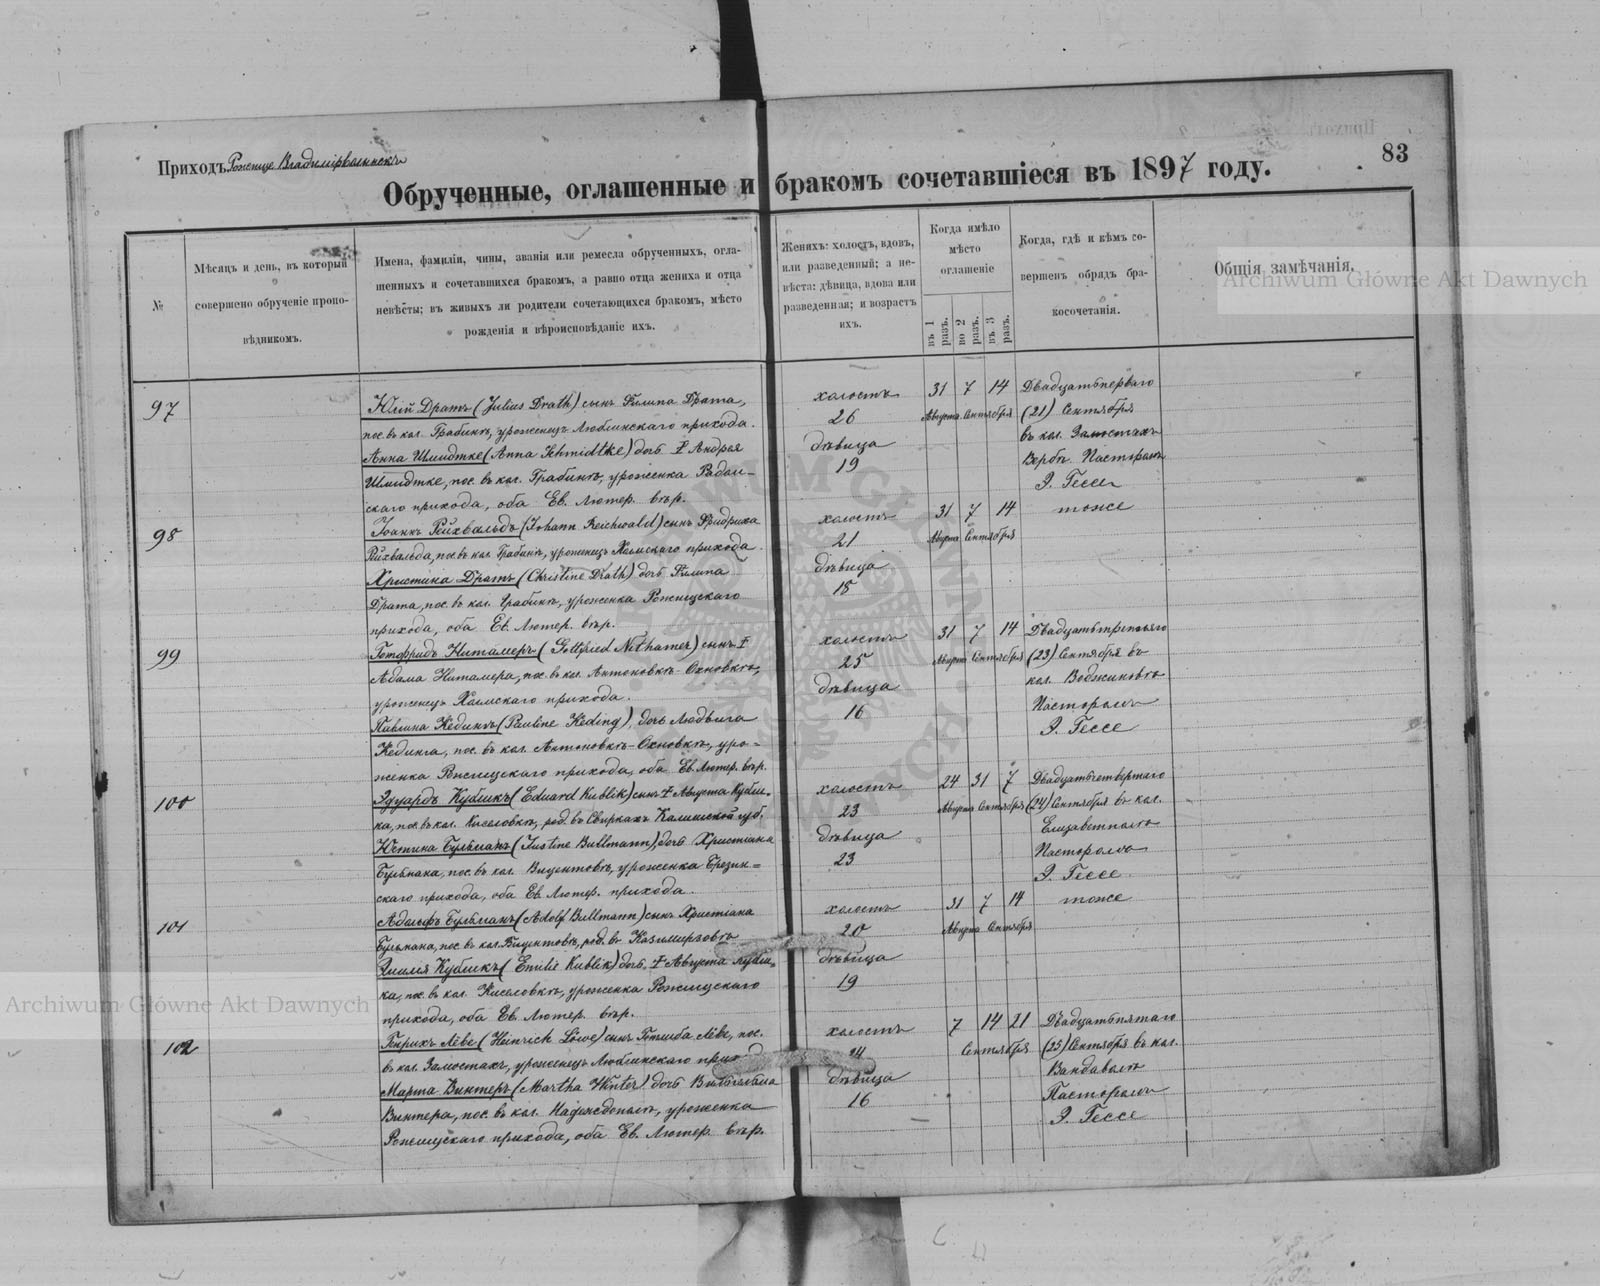 Приходъ Рожище Владимірволынскъ
83
Обрученные, оглашенные и бракомъ сочетавшіеся въ 1897 году.
№
Мѣсяцъ и день, въ который
совершено обрученіе пропо-
вѣдникомъ.
Имена, фамиліи, чины, званія или ремесла обрученныхъ, огла-
шенныхъ и сочетавшихся бракомъ, а равно отца жениха и отца
невѣсты; въ живыхъ ли родители сочетающихся бракомъ, мѣсто
рожденія и вѣроисповѣданіе ихъ.
Женихъ: холостъ, вдовъ,
или разведенный; а не-
вѣста: дѣвица, вдова или
разведенная; и возрастъ
ихъ.
Когда имѣло
мѣсто
оглашеніе
въ 1 разъ.
во 2 разъ.
въ 3 разъ.
Когда, гдѣ и кѣмъ со-
вершенъ обрядъ бра-
косочетанія.
Общія замѣчанія.
Archiwum Główne Akt Dawnych
97
Юлій Дратъ (Julius Drath) сынъ Филипа Драта,
пос. въ кол. Грабинѣ, уроженецъ Люблинскаго прихода.
Анна Шмидтке (Anna Schmidtke) дочь † Андрея
Шмидтке, пос. въ кол. Грабинѣ, уроженка Радом-
скаго прихода, оба Ев. Лютер. вѣр.
холостъ
26
дѣвица
19
31 7 14
Августа Сентября
Двадцатьперваго
(21) Сентября
въ кол. Замостахъ
Вербѣ Пасторомъ
Э. Гессе
98
Іоаннъ Рейхвальдъ (Johann Reichwald) сынъ Фридриха
Рейхвальда, пос. въ кол. Грабинѣ, уроженецъ Холмскаго прихода.
Христина Дратъ (Christine Drath) дочь Филипа
Драта, пос. въ кол. Грабинѣ, уроженка Рожищскаго
прихода, оба Ев. Лютер. вѣр.
холостъ
21
дѣвица
18
31 7 14
Августа Сентября
тоже
99
Готфридъ Нитамеръ (Gottfried Nithamer) сынъ †
Адама Нитамера, пос. въ кол. Антоновкѣ-Охновкѣ,
уроженецъ Холмскаго прихода.
Павлина Кединъ (Pauline Keding), дочь Людвига
Кединга, пос. въ кол. Антоновкѣ-Охновкѣ, уро-
женка Рожищскаго прихода, оба Ев. Лютер. вѣр.
холостъ
25
дѣвица
16
31 7 14
Августа Сентября
Двадцатьтретьяго
(23) Сентября въ
кол. Воджиновѣ
Пасторомъ
Э. Гессе
100
Эдуардъ Кубликъ (Eduard Kublik) сынъ † Августа Кубли-
ка, пос. въ кол. Киселовкѣ, род. въ Свиркахъ Калишской губ.
Юстина Бульманъ (Justine Bullmann), дочь Христіана
Бульмана, пос. въ кол. Вицентовкѣ, уроженка Брезин-
скаго прихода, оба Ев. Лютер. прихода.
холостъ
23
дѣвица
23
24 31 7
Августа Сентября
Двадцатьчетвертаго
(24) Сентября въ кол.
Елизаветполѣ
Пасторомъ
Э. Гессе
101
Адольфъ Бульманъ (Adolf Bullmann) сынъ Христіана
Бульмана, пос. въ кол. Вицентовкѣ, род. въ Казимирзовѣ
Эмилія Кубликъ (Emilie Kublik) дочь † Августа Кубли-
ка, пос. въ кол. Киселовкѣ, уроженка Рожищскаго
прихода, оба Ев. Лютер. вѣр.
холостъ
20
дѣвица
19
31 7 14
Августа Сентября
тоже
Archiwum Główne Akt Dawnych
102
Генрихъ Лёве (Heinrich Löwe) сынъ Готлиба Лёве, пос.
въ кол. Замостахъ, уроженецъ Люблинскаго прих
Марта Винтеръ (Martha Winter) дочь Вильгельма
Винтера, пос. въ кол. Надеждополѣ, уроженка
Рожищскаго прихода, оба Ев. Лютер. вѣр.
холостъ
24
дѣвица
16
7 14 21
Сентября
Двадцатьпятаго
(25) Сентября въ кол.
Вандаволѣ
Пасторомъ
Э. Гессе